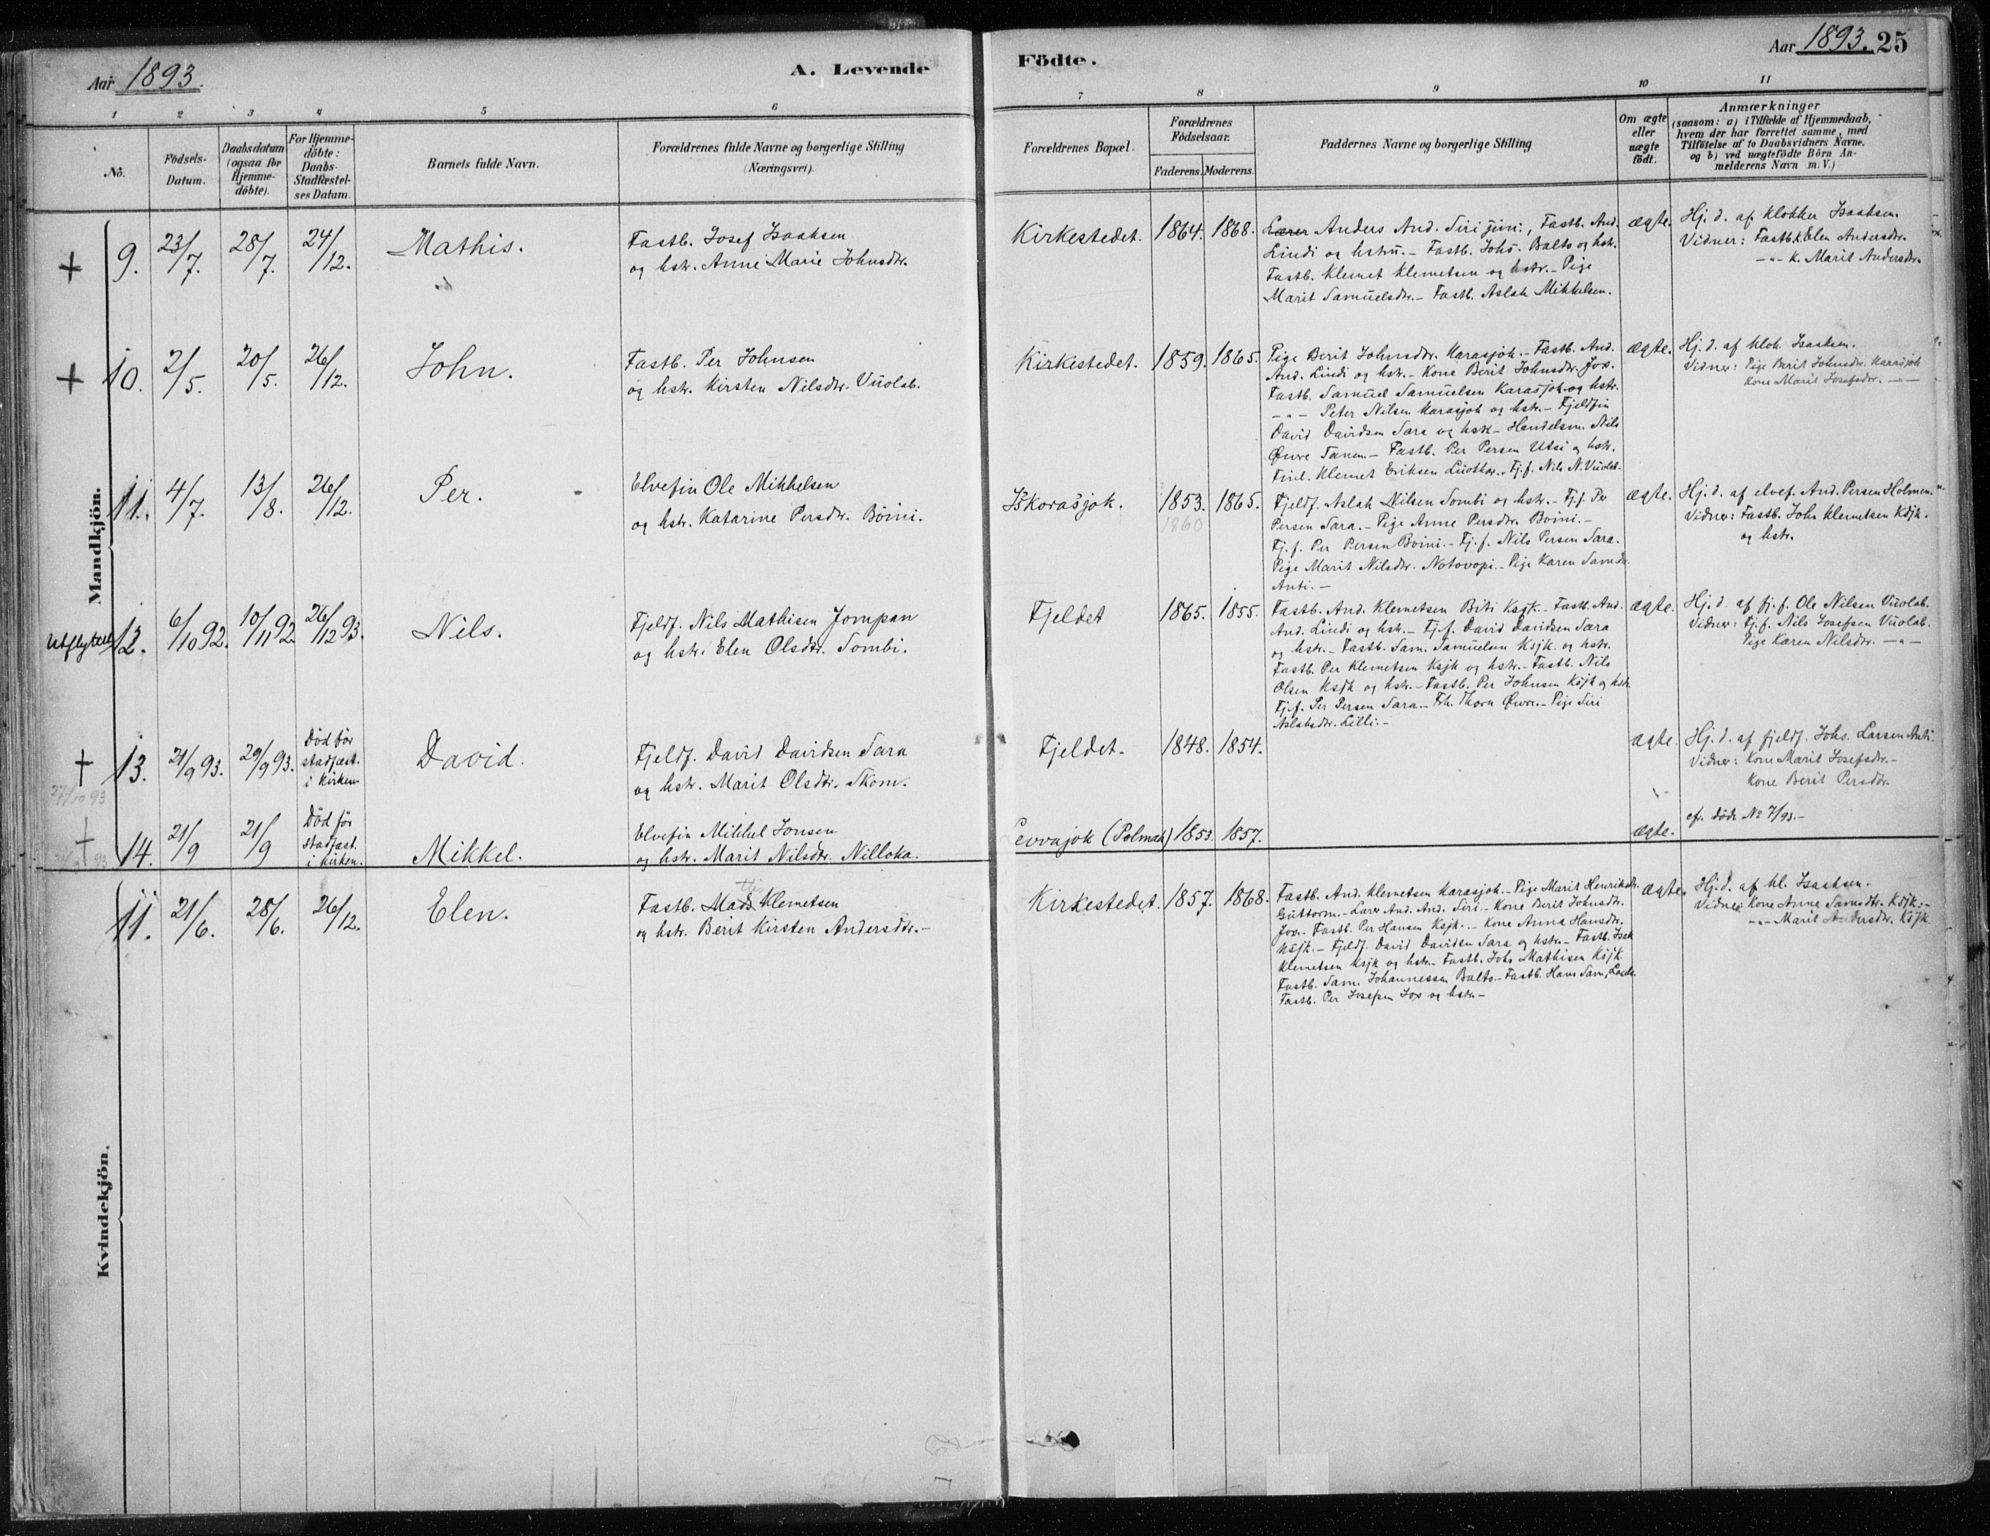 Aar 1893.
A. Levende
Födte.
Aar 1893. 25
1 2 3 4 5 6 7 8 9 10 11
No.
Födsels-
Datum.
Daabsdatum
(ogsaa for
Hjemme-
döbte).
For Hjemme-
döbte:
Daabs-
Stadfæstel-
ses Datum.
Barnets fulde Navn.
Forældrenes fulde Navne og borgerlige Stilling
(Næringsvei).
Forældrenes Bopæl.
Forældrenes
Födselsaar.
Faderens. Moderens.
Faddernes Navne og borgerlige Stilling
Om ægte
eller
uægte
födt.
Anmærkninger
(saasom: a) i Tilfælde af Hjemmedaab,
hvem der har forrettet samme, med
Tilföielse af to Daabsvidners Navne,
og b) ved uægtefödte Börn An-
melderens Navn m. V.)
Mandkjön.
+ 9. 23/7. 28/7. 24/12. Mathis.
Fastb. Josef Isaaksen
og hstr. Anne Marie Johnsdtr.
Kirkestedet. 1864. 1868.
Lærer Anders And. Siri jun., Fastb. And.
Lindi og hstru. – Fastb. Johs. Balto og hstr.
Fastb. Klemet Klemetsen og hstr. – Pige
Marit Samuelsdtr. – Fastb. Aslak Mikkelsen.
ægte.
Hj. d. af Klokker Isaaksen.
Vidner: Fastb.k. Elen Andersdtr.
– " – k. Marit Andersdtr.
+ 10. 2/5. 20/5. 26/12. John.
Fastb. Per Johnsen
og hstr. Kirsten Nilsdtr. Vuolab.
Kirkestedet. 1859. 1865.
Pige Berit Johnsdtr. Karasjok. – Fastb. And.
And. Lindi og hstr. – Kone Berit Johnsdtr. Jox.
Fastb. Samuel Samuelsen Karasjok og hstr.
– " – Peter Nilsen Karasjok og hstr. – Fjeldfin
David Davidsen Sara og hstr. – Handelsm. Nils
Øwre Tanem. – Fastb. Per Persen Utsi og hstr.
Find. Klemet Eriksen – Fj.f. Nils N. Vuolab.
ægte.
Hj. d. af klok. Isaksen.
Vidner: Pige Berit Johnsdtr. Karasjok
Kone Marit Josefsdtr. – " –
11. 4/7. 13/8. 26/12. Per.
Elvefin Ole Mikkelsen
og hstr. Katarine Persdtr. Boini.
Iskorasjok. 1853. 1865.
1860
Fjeldf. Aslak Nilsen Sombi og hstr. – Fj.f. Per
Persen Sara. – Pige Anne Persdtr. Boini. –
Fj.f. Per Persen Boini. – Fj.f. Nils Persen Sara.
Pige Marit Nilsdtr. Notovopi. – Pige Karen Samdtr.
Anti. –
ægte.
Hj. d. af elvef. And. Persen Holmen.
Vidner: Fastb. John Klemetsen Ksjk.
og hstr.
Utflyttet 12. 6/10 92. 10/11 92. 26/12 93. Nils.
Fjeldf. Nils Mathisen Jompan
og hstr. Elen Olsdtr. Sombi.
Fjeldet 1865. 1855.
Fastb. And. Klemetsen Biti Ksjk. – Fastb. And.
And. Lindi og hstr. – Fj.f. David Davidsen Sara
og hstr. – Fastb. Sam. Samuelsen Ksjk. og hstr.
Fastb. Per Klemetsen Ksjk og hstr. – Fastb. Nils
Olsen Ksjk og hstr. – Fastb. Per Johnsen Ksjk og hstr.
Fj.f. Per Persen Sara. – Frk. Thora Øwre. – Pige Siri
Aslaksdtr. Lilli. –
ægte.
Hj. d. af fj.f. Ole Nilsen Vuolab.
Vidner: Fj.f. Nils Josefsen Vuolab.
Pige Karen Nilsdtr. – " –
+ 13. 21/9 93. 29/9 93. Död för
stadfæst.
i kirken
27/10 93
David.
Fjeldf. David Davidsen Sara
og hstr. Marit Olsdtr. Skom.
Fjeldet. 1848. 1854.
ægte
Hj. d. af fjeldf. Johs. Larsen Anti.
Vidner: Kone Marit Josefsdtr. –
Kone Berit Persdtr.
+ 14. 21/9 21/9 Död för
stadfæst.
i kirken.
Mikkel.
Elvefin Mikkel Jonsen
og hstr. Marit Nilsdtr. Nilloka.
Levvajok (Polmak) 1853. 1857.
ægte.
cfr. döde No 7/93. –
Kvindekjön.
11. 21/6. 28/6. 26/12. Elen.
Fastb. Mads Klemetsen
this
og hstr. Berit Kirsten Andersdtr. –
Kirkestedet. 1857. 1868.
Fastb. And. Klemetsen Karasjok. – Pige Marit Henriksdtr.
Guttorm. – Lærer And. And. Siri. – Kone Berit Johnsdtr.
Jox. – Fastb. Per Hansen Ksjk. – Kone Anna Hansdtr.
Ksjk. – Fjeldf. David Davidsen Sara og hstr. – Fastb. Isak
Klemetsen Ksjk og hstr. – Fastb. Johs Mathisen Ksjk.
Fastb. Sam. Johannessen Balto. – Fastb. Hans Sam.
Fastb. Per Josefsen Jox og hstr. –
ægte.
Hj. d. af kl. Isaksen.
Vidner: Kone Anne Samsdtr. Ksjk. –
– " – Marit Andersdtr. Ksjk.